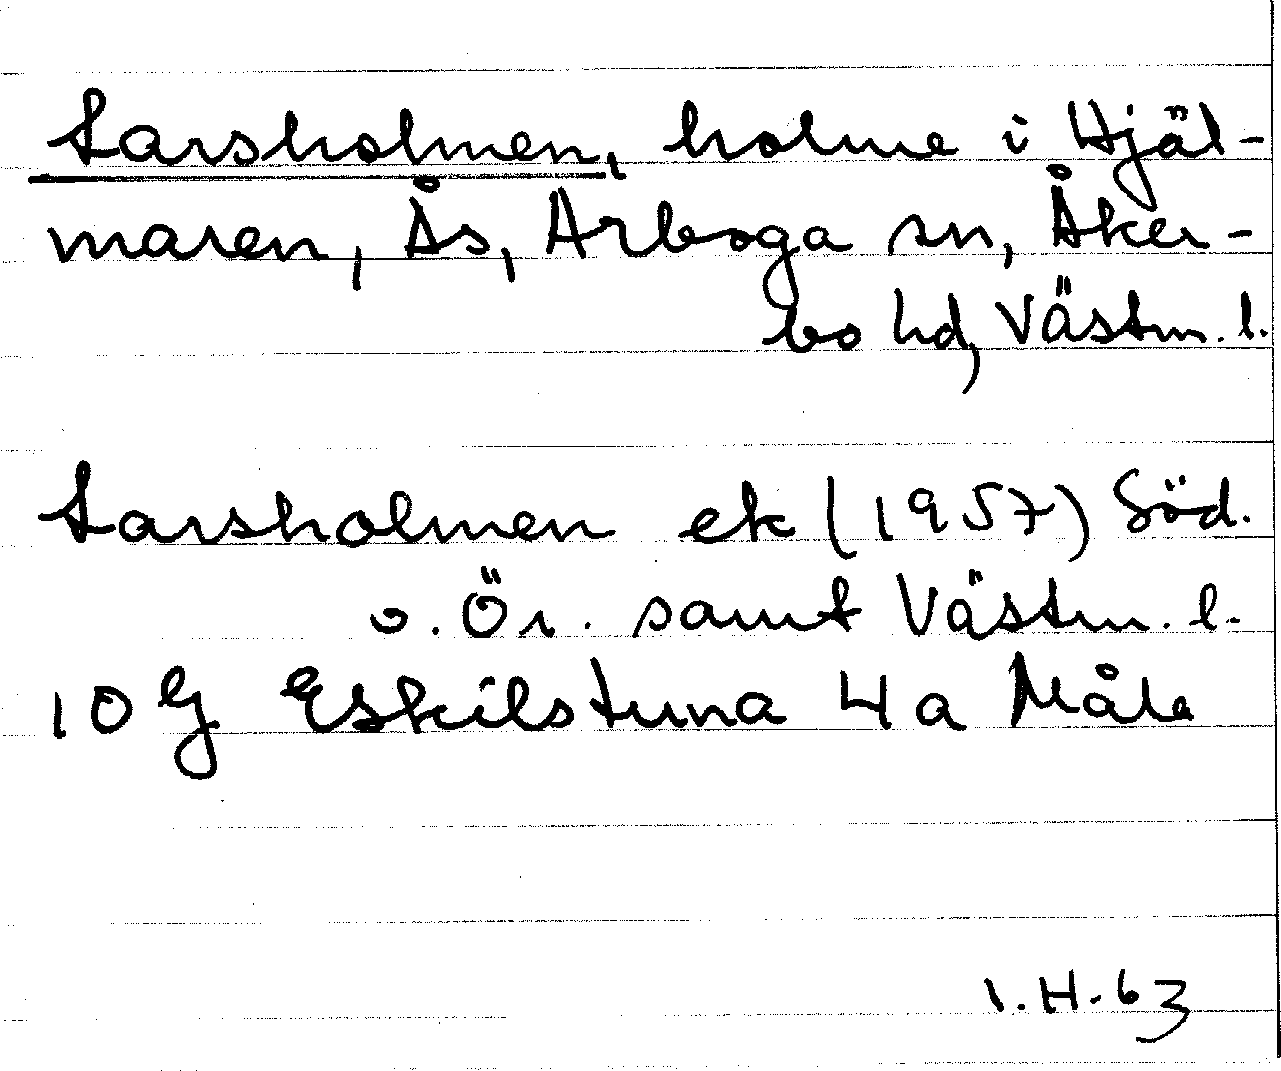 Larsholmen, holme i Hjäl-
maren, Ås, Arboga sn, Åker-
bo hd, Västm. l.
Larsholmen ek (1957) Söd.
o. Ör. samt Västm. l.
10 G Eskilstuna 4 a Måla
I.H.63